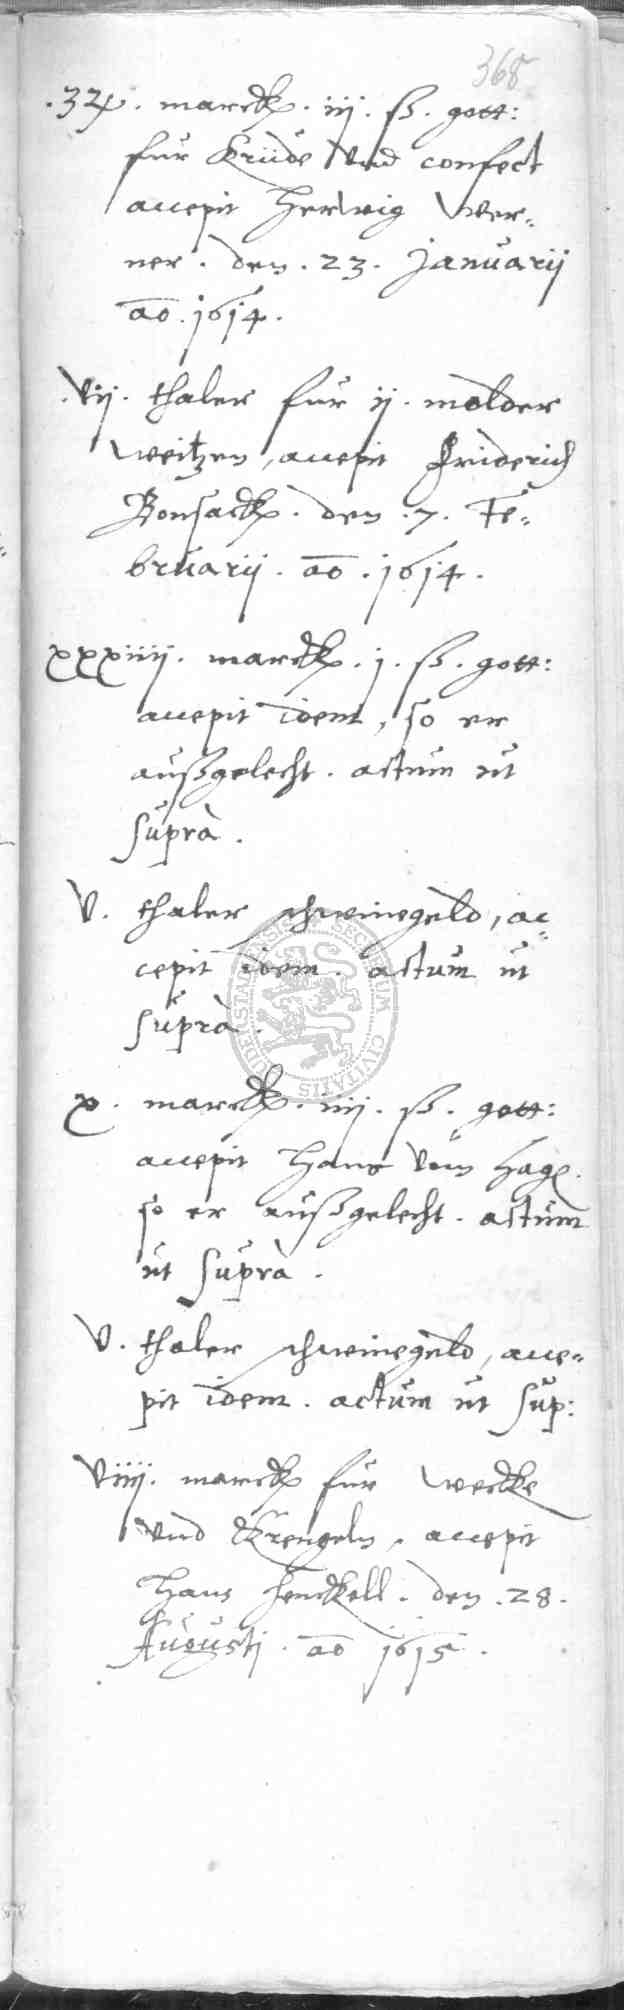 368
.32½. marck. iij. ß. gott:
für Krüde vnd confect
accepit Herwig Wer=
ner. den. 23. Januarij
ao. 1614.
.vij. thaler für ij. molder
Weitzen, accepit Friderich
Bonsack. den .7. Fe=
bruarij. ao. 1614.
xxxiiij. marck. j. ß. gott:
accepit idem, so er
außgelecht. actum ut
suprà.
V. thaler schweinegeld, ac=
cepit idem. actum ut
suprà.
x. marck. iiij. ß. gott:
accepit Hans vom Hage.
so er außgelecht. actum
ut suprà.
V. thaler schweinegeld, acce=
pit idem. actum ut sup:
Viiij. marck für Wecke
vnd Krengeln, accepit
Hans Henckell. den .28.
Augusti. ao 1615.
SECRETUM CIVITATIS